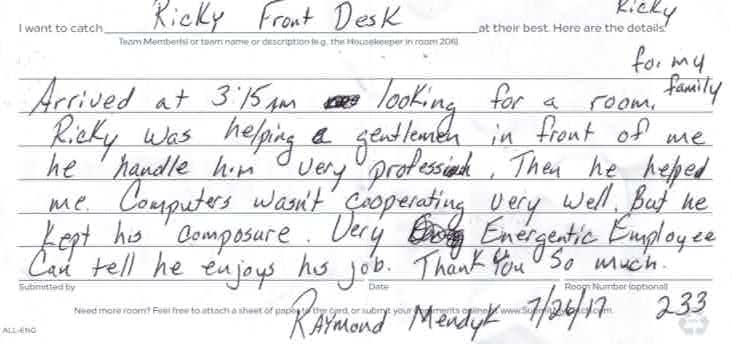 Ricky
I want to catch Ricky Front Desk at their best. Here are the details:
Team Member(s) or team name or description (e.g. the Housekeeper in room 206)
for my
family
Arrived at 3:15 AM looking for a room,
Ricky was helping a gentlemen in front of me
he handle him very profession. Then he helped
me. Computers wasn't cooperating very well. But he
Kept his composure. Very Energentic Employee
Can tell he enjoys his job. Thank You So much.
Submitted by Date Room Number (optional)
Need more room? Feel free to attach a sheet of paper to the card, or submit your comments online at
Raymond Mendyk 7/26/17 233
ALL-ENG